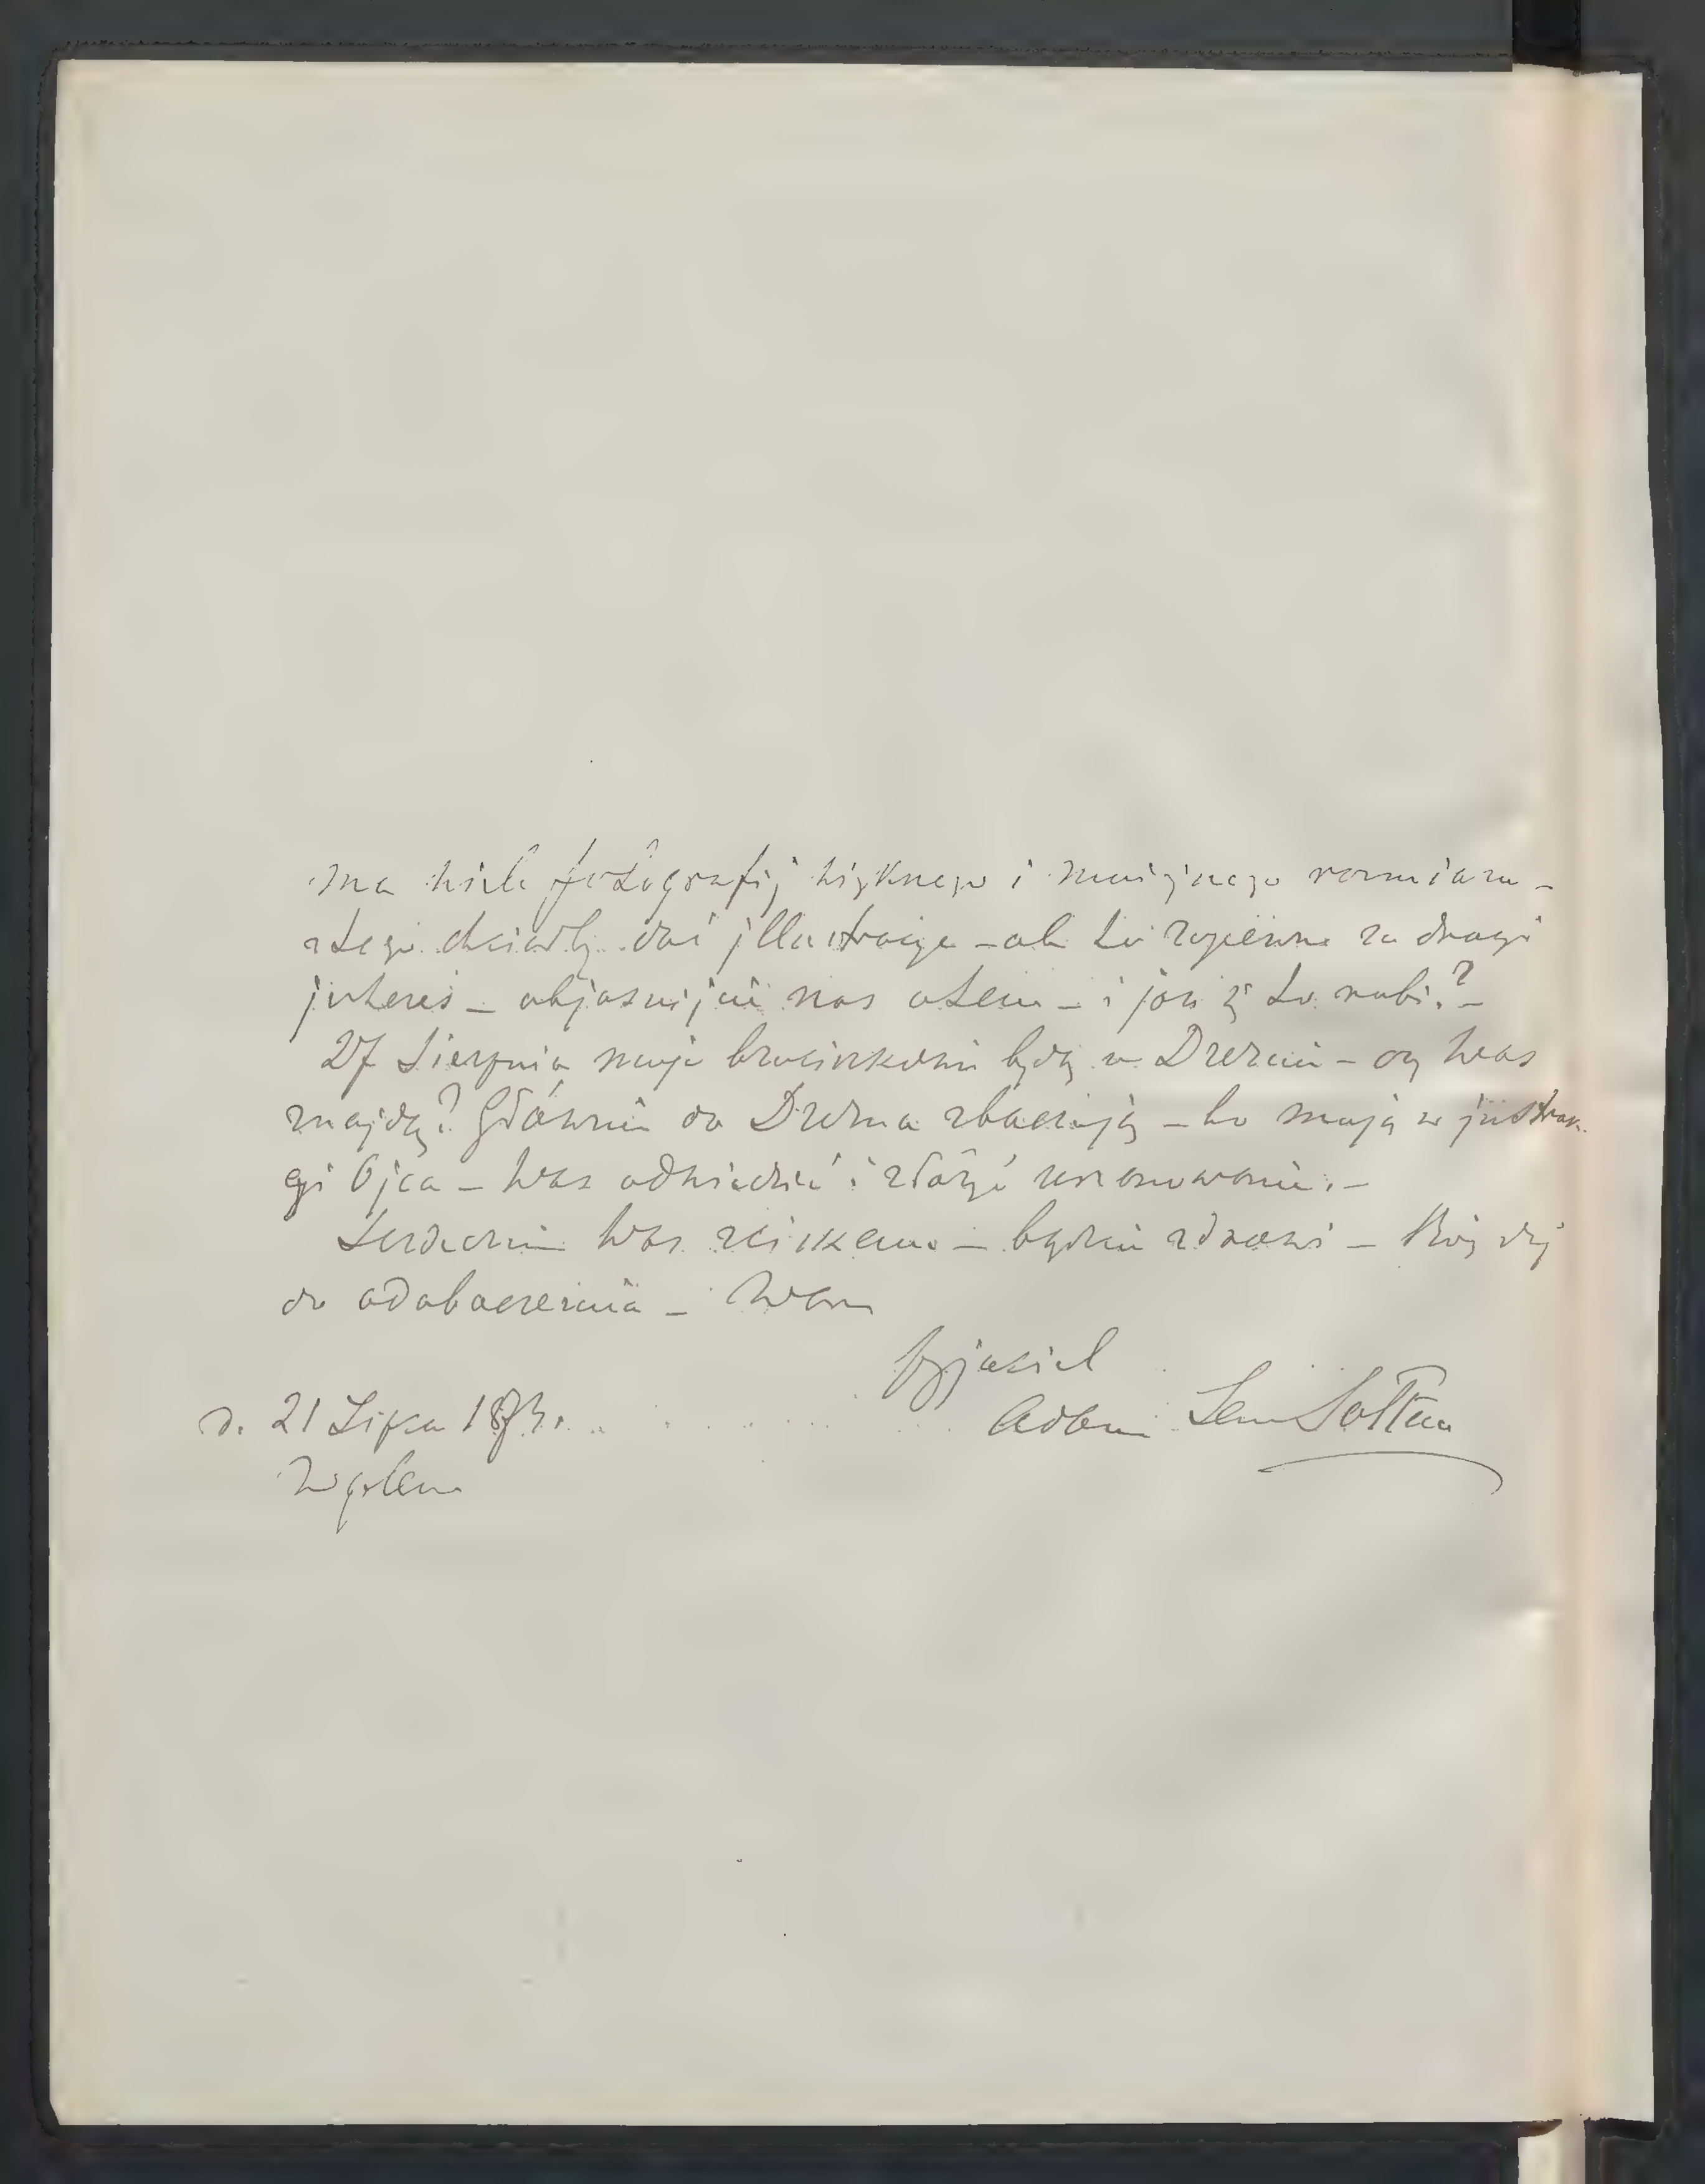 ma wiele fotografij większego i mniejszego rozmiaru –
z tego chciałby dać jllustracye – ale to zapewne za drogi
jnteres – objaśnijcie nas o tem – i jak się to robi? –
27 Sierpnia moje braciszkowie będą w Dreznie – czy Was
znajdą? Głównie do Drezna zbaczają – bo mają w jnstruk-
cyi Ojca – Was odwiedzić i złożyć uszanowanie. –
Serdecznie Was ściskam – bądźcie zdrowi –
do odobaczenia – Wam
przyjaciel
Adam Lew Sołtan
d. 21 Lipca 187